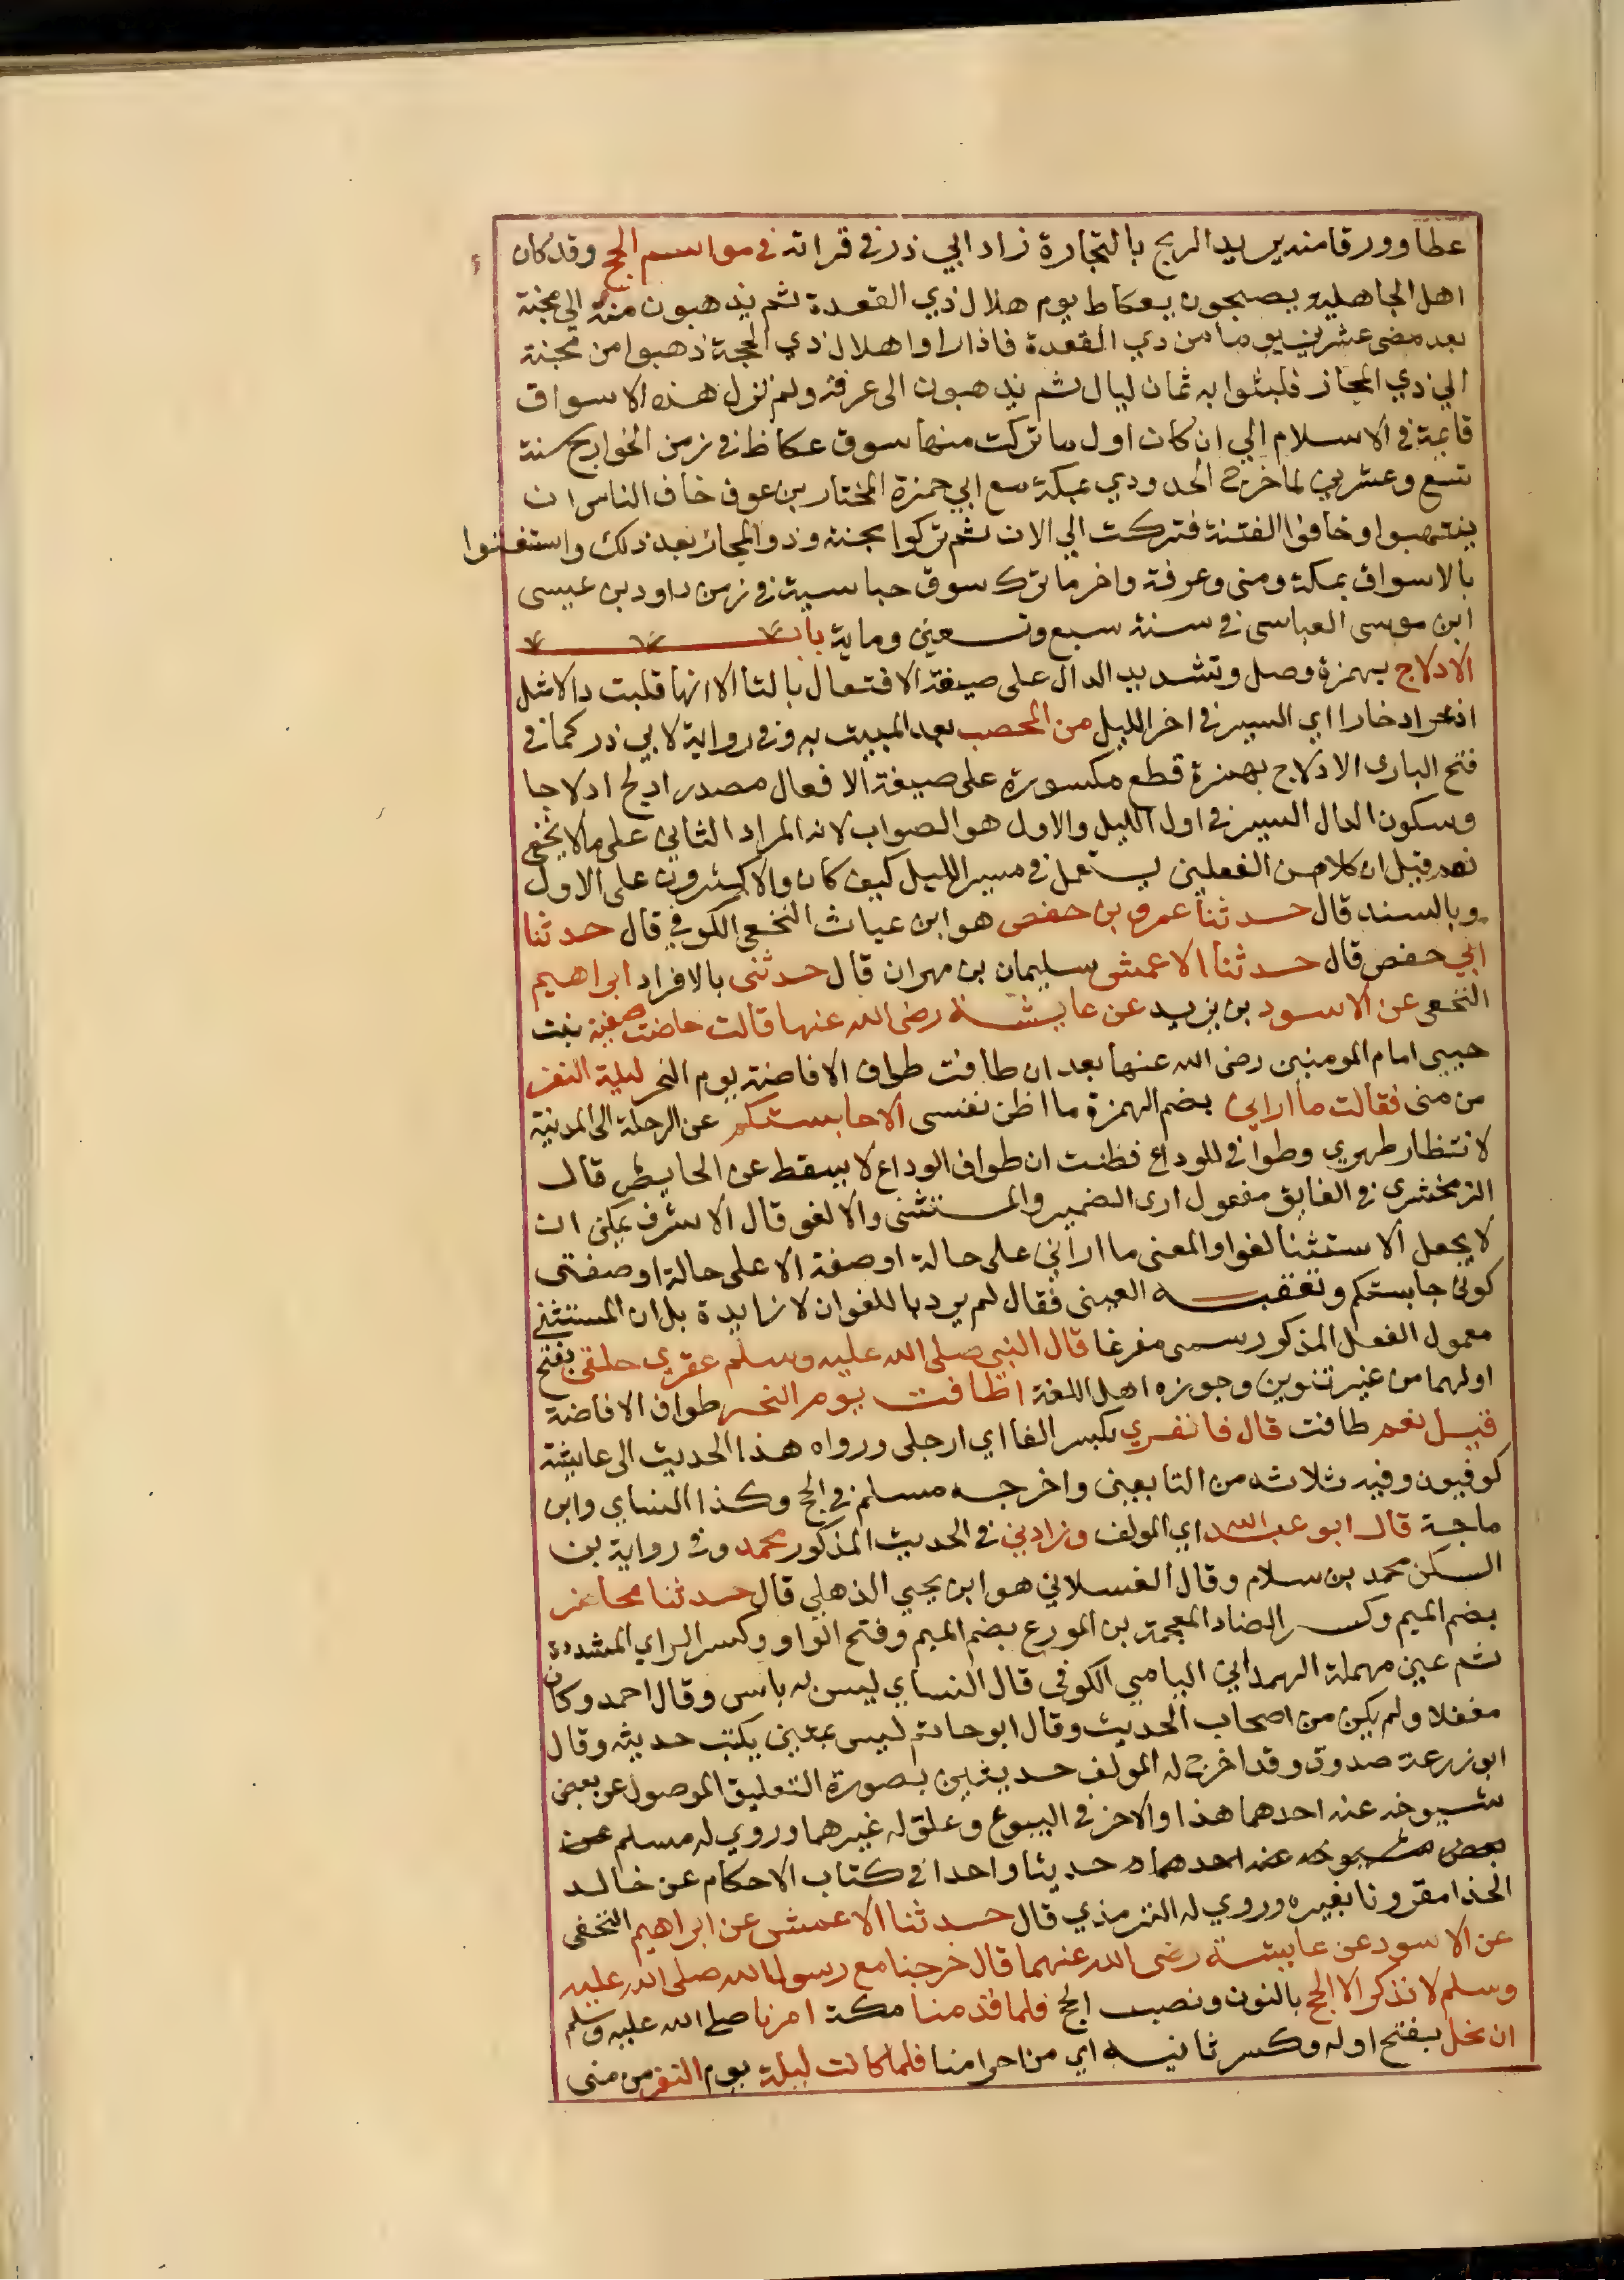 عطا وورقا منه يريد الربح بالتجارة زاد ابي ذر في قراته في مواسم الحج وقد كان
اهل الجاهليه يصبحون بعكاط يوم هلال ذي القعدة ثم يذهبون منه الي مجنة
بعد مضى عشرين يوما من ذي القعدة فاذا راوا هلال ذي الحجة ذهبوا من مجنة
الي ذي المجاز فلبثوا به ثمان ليال ثم يذهبون الى عرفة ولم تزل هذه الاسواق
قايمة في الاسلام الي ان كان اول ما تركت منها سوق عكاظ في زمن الخوارج سنة
تسع وعشرين لما خرج الحدودي بمكة مع ابي حمزة المختار بن عوف خاف الناس ان
ينتهبوا وخافوا الفتنة فتركت الي الان ثم تركوا مجنة وذو المجاز بعد ذلك واستغنوا
بالاسواق بمكة ومنى وعرفة واخر ما ترك سوق حباسية في زمن داود بن عيسى
ابن موسى العباسى في سنة سبع وتسعين وماية باب
الادلاج بهمزة وصل وتشديد الدال على صيغة الافتعال بالتا الا انها قلبت دالا مثل
اذخر ادخارا اي السير في اخر الليل من المحصب بعد المبيت به وفي رواية لابي ذر كما في
فتح البارى الادلاج بهمزة قطع مكسورة على صيغة الافعال مصدر ادلج ادلاجا
وسكون الدال السير في اول الليل والاول هو الصواب لانه المراد الثاني على ما لا يخفى
نعم قيل ان كلا من الفعلين يستعمل في مسير الليل كيف كان والاكثرون على الاول
وبالسند قال حدثنا عمر بن حفص هو ابن عياث النخعي الكوفي قال حدثنا
ابي حفص قال حدثنا الاعمش سليمان بن مهران قال حدثنى بالافراد ابراهيم
النخعى عن الاسود بن يزيد عن عايشة رضى الله عنها قالت حاضت صفية بنت
حييى امام المومنين رضى الله عنها بعد ان طافت طواف الافاضة يوم النحر ليلة النفر
من منى فقالت ما اراني بضم الهمزة ما اظن نفسى الا حابستكم عن الرحلة الى المدينة
لانتظار طهري وطوافي للوداع فظنت ان طواف الوداع لا يسقط عن الحايض قال
الزمخشرى في الفايق مفعول ارى الضمير والمستثنى والا لغو قال الاشرف يمكن ان
لا يجعل الاستثنا لغوا والمعنى ما اراني على حالة او صفة الا على حالة او صفتى
كونى حابستكم وتعقبه العينى فقال لم يرد بها للغو ان لا زايدة بل ان المستثنى
معمول الفعل المذكور سمى مفرغا قال النبي صلى الله عليه وسلم عقرى حلقى بفتح
اولهما من غير تنوين وجوزه اهل اللغة اطافت يوم النحر طواف الافاضة
قيل نعم طافت قال فانفري بكسر الفا اي ارجلى ورواه هذا الحديث الى عايشة
كوفيون وفيه ثلاثه من التابعين واخرجه مسلم في الحج وكذا النساي وابن
ماجة قال ابو عبد الله اي المولف وزادني في الحديث المذكور محمد وفي رواية بن
السكن محمد بن سلام وقال الغسلاني هو ابن يحيي الذهلي قال حدثنا محاضر
بضم الميم وكسر الضاد المعجمة بن المورع بضم الميم وفتح الواو وكسر الراي المشددة
ثم عين مهملة الهمداني اليامي الكوفي قال النساي ليس به باس وقال احمد وكان
مغفلا ولم يكن من اصحاب الحديث وقال ابو حاتم ليس بمتين يكتب حديثه وقال
ابو زرعة صدوق وقد اخرج له المولف حديثين بصورة التعليق الموصول عن بعض
شيوخه عنه احدهما هذا والاخر في البيوع وعلق له غيرهما وروي له مسلم عن
بعض شيوخه عنه احدهما حديثا واحدا في كتاب الاحكام عن خالد
الحذا مقرونا بغيره وروي له الترمذي قال حدثنا الاعمش عن ابراهيم النخفى
عن الاسود عن عايشة رضى الله عنهما قال خرجنا مع رسول الله صلى الله عليه
وسلم لا نذكر الا الحج بالنون ونصب الحج فلما قدمنا مكة امرنا صلى الله عليه وسلم
ان نحل بفتح اوله وكسر ثانيه اي من احرامنا فلما كانت ليلة يوم النفر من منى